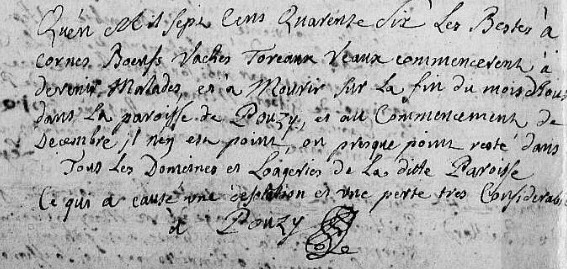 Qu'en Mil sept Cens Quarente Six Les Bestes à
Cornes Boeufs Vaches Toreaux Veaux commencerent à
devenir Malades et à Mourir sur La fin du mois
dans La paroisse de Pouzy, et au Commencement de
Decembre, il n'en est point, ou presque point resté dans
Tous Les Domeines et Logeries de La ditte Paroisse
Ce qui a causé une et une perte tres Considerable
a Pouzy